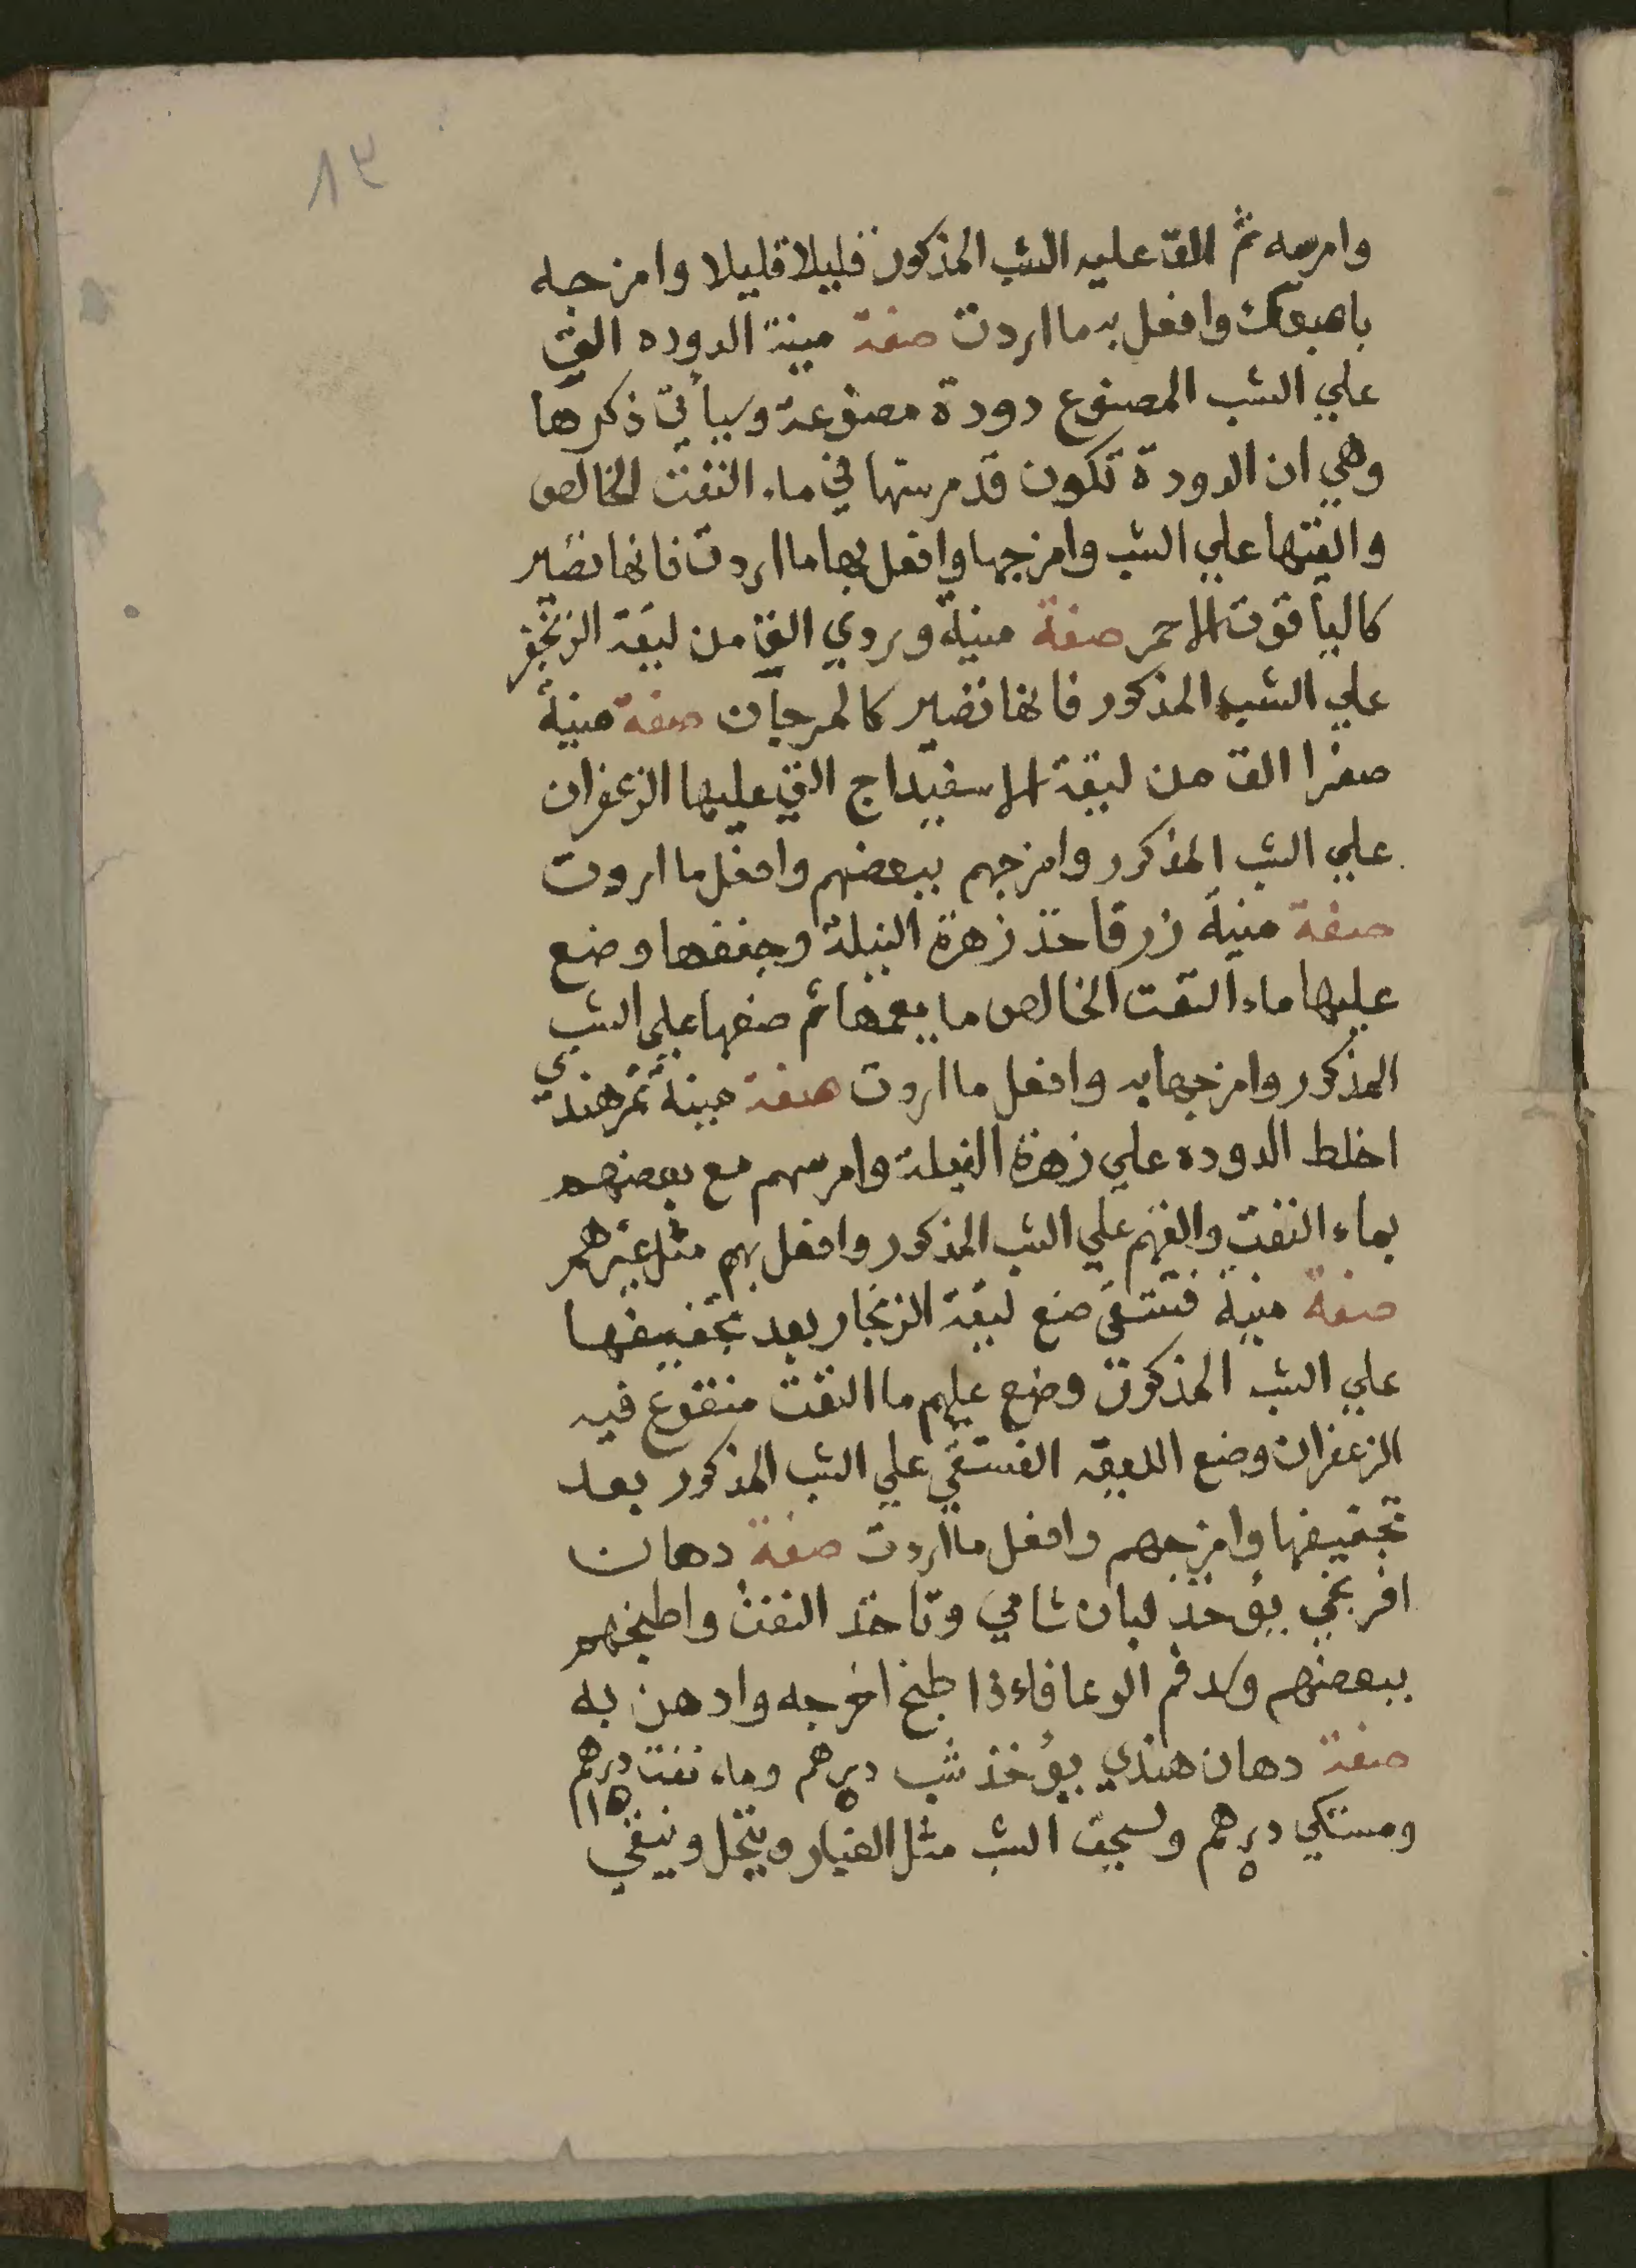 ١٣
وامرسه ثم الق عليه الشب المذكور قليلا قليلا وامزجه
باصبعك وافعل به ما اردت صفة مينة الدوده التى
علي الشب المصنوع دودة مصنوعة وسيأتى ذكرها
وهي ان الدودة تكون قد مرستها في ماء النفت الخالص
والقتها علي الشب وامزجها وافعل بها ما اردت فانها تصير
كاليأقوت الاحمر صفة مينة وردي الق من ليقة الزنجفر
علي الشب المذكور فانها تصير كالمرجان صفة مينة
صفرا الق من ليقة الاسفيداج التى عليها الزعفران
علي الشب المذكور وامزجهم ببعضهم وافعل ما اردت
صفة مينة زرقا خذ زهرة النيلة وجففها وضع
عليها ماء النفت الخالص ما يغمرها ثم ضفها علي الشب
المذكور وامزجها به وافعل ما اردت صفة مينة تمرهندي
اخلط الدوده علي زهرة النيلة وامرسهم مع بعضهم
بماء النفت والقهم علي الشب المذكور وافعل بهم مثل غيرهم
صفة مينة فستقى ضع ليقة الزنجار بعد تجفيفها
علي الشب المذكور وضع عليهم ما النفت منقوع فيه
الزعفران وضع الليقه الفستقي علي الشب المذكور بعد
تجفيفها وامزجهم وافعل ما اردت صفة دهان
افرنجي يؤخذ لبان شامي وتاخذ النفت واطبخهم
ببعضهم وسد فم الوعا فاءذا طبخ اخرجه وادهن به
صفة دهان هندي يؤخذ شب درهم وماء نفت درهم
٥ ١٥
ومستكي درهم ويسحق الشب مثل الغبار وينخل وينقي
٥